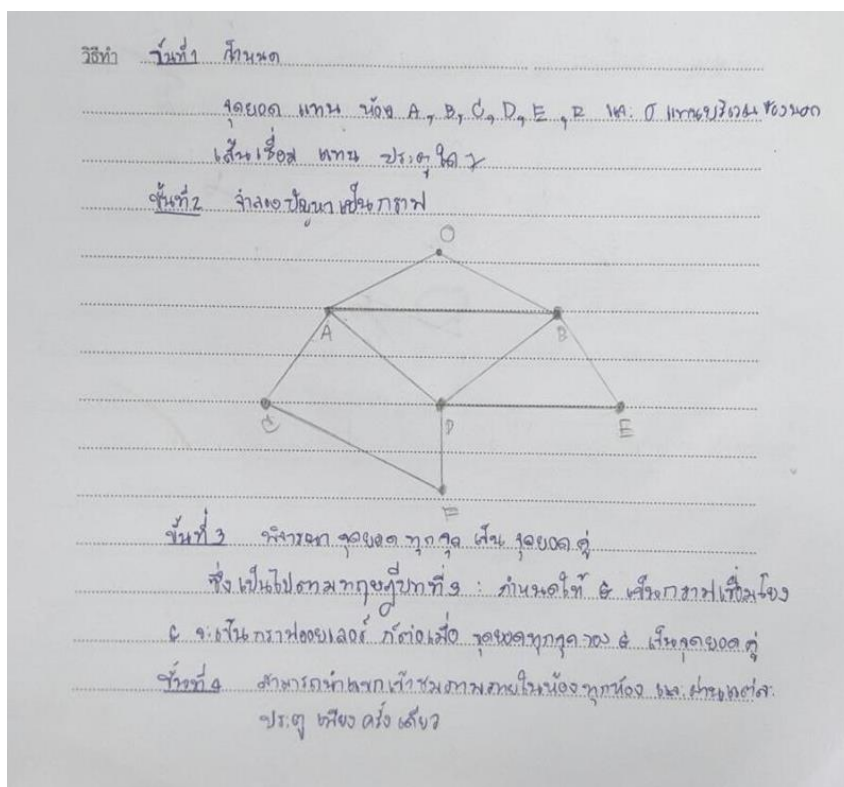 วิธีทำ ขั้นที่ 1 กำหนด
จุดยอด แทน ห้อง A, B, C, D, E, F และ O แทนบริเวณข้างนอก
เส้นเชื่อม แทน ประตูใดๆ
ขั้นที่ 2 จำลองปัญหาเป็นกราฟ
O
A B
C D E
F
ขั้นที่ 3 พิจารณา จุดยอด ทุกจุด เป็น จุดยอด คู่
ซึ่งเป็นไปตามทฤษฎีบทที่ 3 : กำหนดให้ G เป็นกราฟเชื่อมโยง
G จะเป็นกราฟออยเลอร์ ก็ต่อเมื่อ จุดยอดทุกจุดของ G เป็นจุดยอด คู่
ขั้นที่ 4 สามารถนำแขกเข้าชมภายในห้องทุกห้อง และผ่านแต่ละ
ประตู เพียง ครั้ง เดียว